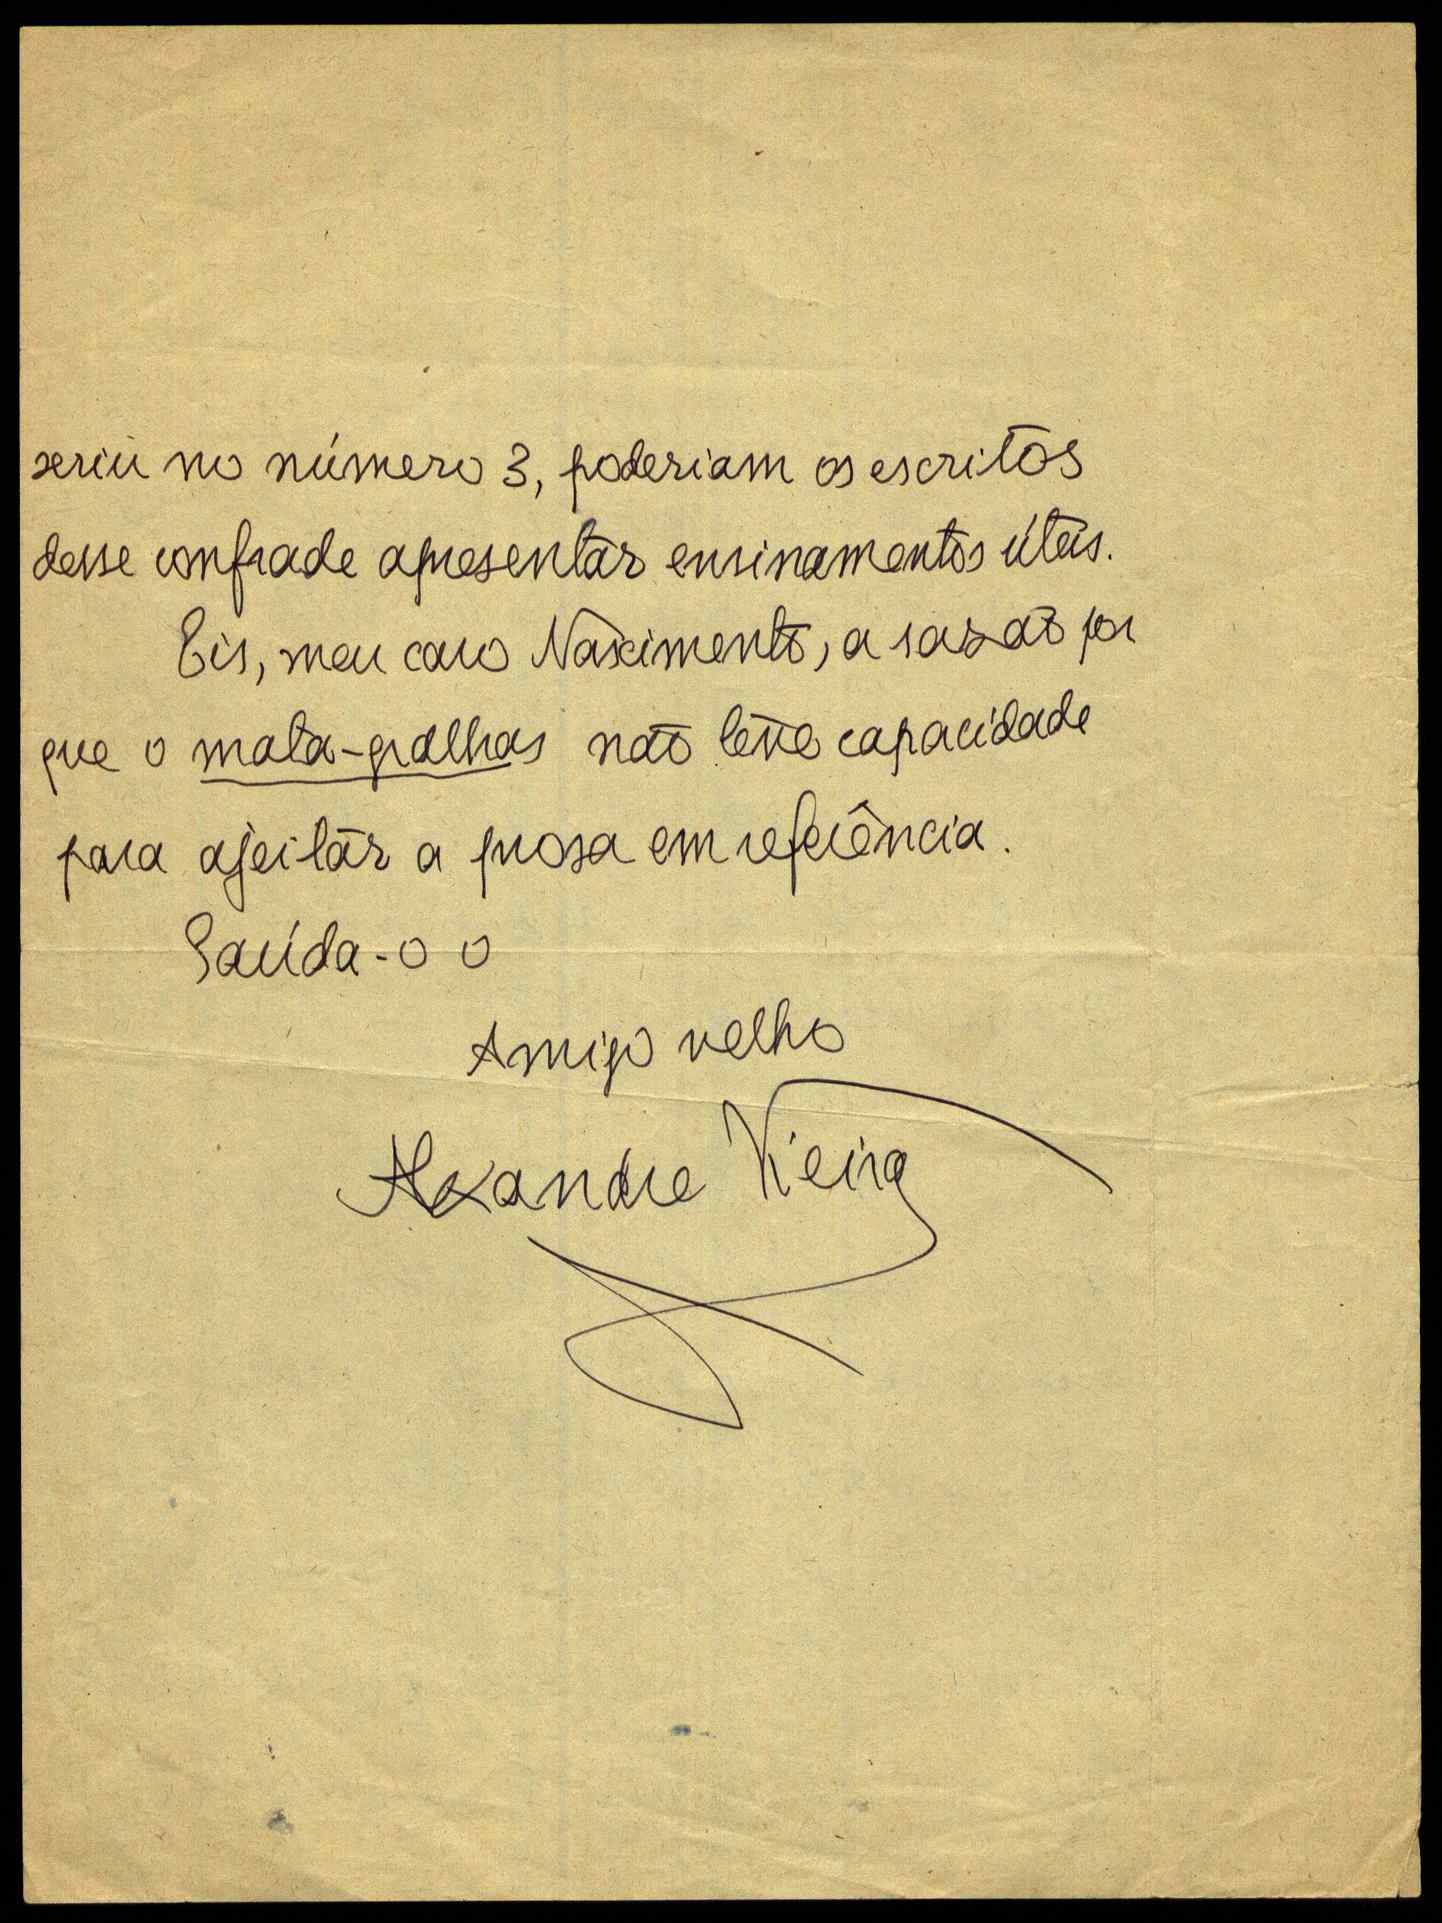 seriu no número 3, poderiam os escritos
desse confrade apresentar ensinamentos úteis.
Eis, meu caro Nascimento, a razão por
que o mata-gralhas não teve capacidade
para ajeitar a prosa em referência.
Saúda-o o
Amigo velho
Alexandre Vieira